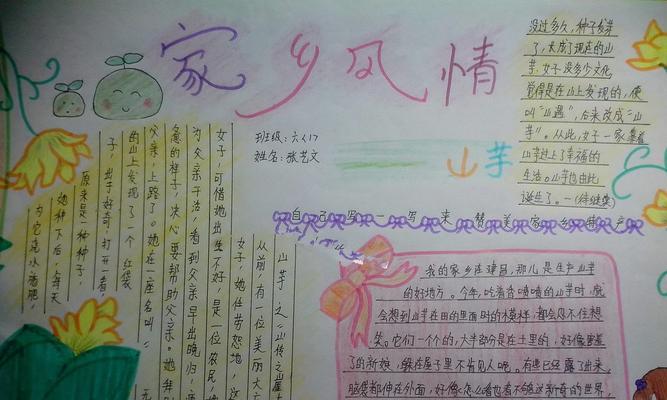 家乡风情
班级：六(1)
姓名：张艺文
山芋
自己写一写来赞美家乡特产
山芋之山传之屋
从前，有一位美丽大方
女子，她任劳怨地，这
女子，可惜她出生不好，是一位农民，她
为父亲干活，看到父亲早出晚归，满
急的样子，决心要帮助父亲。她拜别
父亲，上路了。她在一座名叫
的山上发现了一个红袋
子，出于好奇，打开一看，
原来是一种种子，
她种下后，每天
为它浇水施肥，
没过多久，种子发芽
了，长成了现在的山
芋，女子没多少文化，
觉得是在山上发现的，便
叫“山遇”，后来改成“山
芋”。从此，女子一家靠着
山芋过上了幸福的
生活。山芋也由此
诞生了。——(待继续)
我的家乡在建昌，那儿是生产山芋
的好地方。今年，吃着香喷喷的山芋时，就
会想到山芋在田的里面时的模样，都会忍不住想
笑。它们一个个的，大半部分是在土里的，好像害羞
了的新娘，躲在屋子里不肯见人呢。有些已经露了出来，
脑袋都伸在外面，好像怎么看也看不够这新奇的世界，